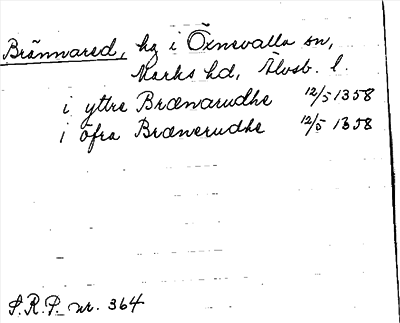 Brännared, hg i Öxnevalla sn,
Marks hd, Älvsb. l.
i yttre Brænarudhe 12/5 1358
i öfra Brænerudhe 12/5 1358
S.R.P. nr. 364